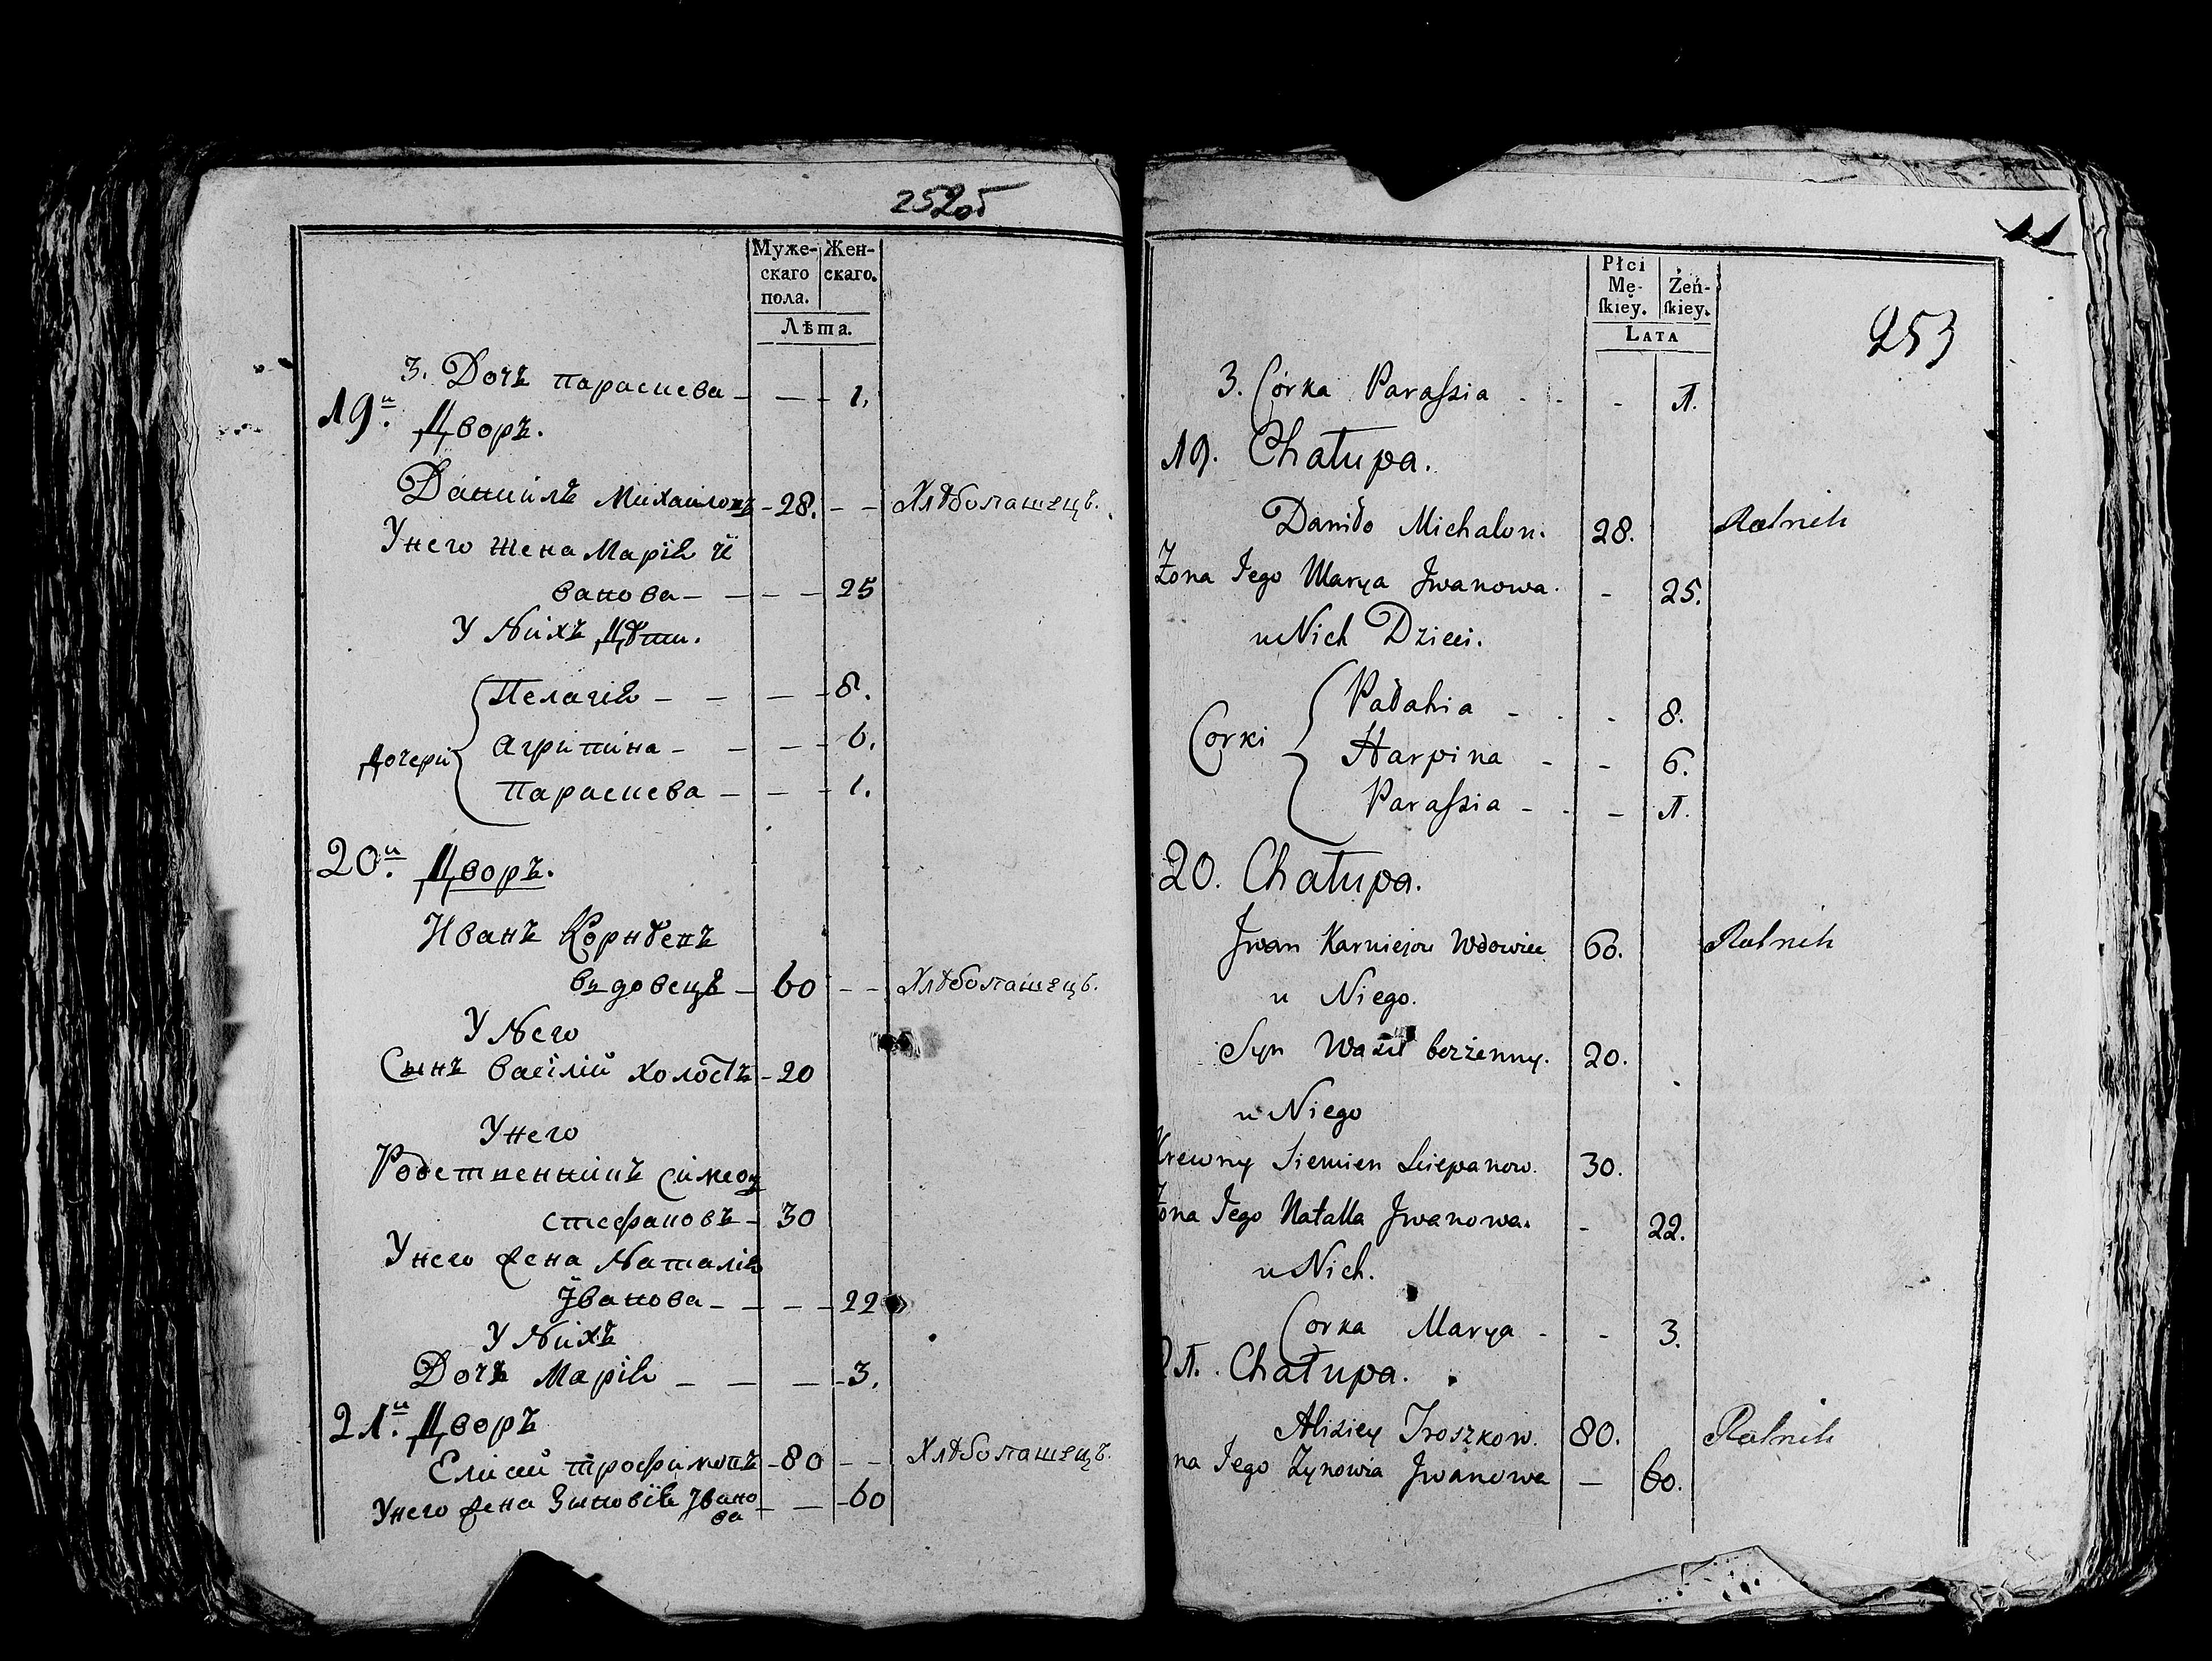 252об
Муже-
скаго
пола.
Жен-
скаго.
Лѣта.
3. Дочь Параскева — — — 1.
19й. Дворъ.
Даниилъ Михаиловъ — 28. — — Хлѣбопашецъ.
У него жена Марія И
ванова — — — — 25
У Нихъ Дѣти.
Пелагія — — — — 8.
Дочери
Агрипина — — — — 6.
Параскева — — — 1.
20й. Дворъ.
Иванъ Корнѣевъ
вдовецъ — 60 — — Хлѣбопашецъ.
У Него
Сынъ Василій холостъ — 20
У него
Родственникъ Симеон
Стефановъ — 30
У него жена Наталія
Іванова — — — — 22
У Нихъ
Дочь Марія — — — — 3.
21й. Дворъ
Елисей Трофимовъ — 80 — — Хлѣбопашецъ.
У него жена Зиновія Івано
ва — — — 60
11
253
Płci
Mę-
ſkiey.
Żeń-
ſkiey.
LATA
3. Córka Paraſzia - - - 1.
19. Chałupa.
Daniło Michałow. 28. Rolnik
Żona Jego Marya Jwanowa. - 25.
u Nich Dzieci.
Pałahia - - - 8.
Corki
Harpina - - 6.
Paraſzia - - - 1.
20. Chałupa.
Jwan Karniejow Wdowiec 60. Rolnik
u Niego.
Syn Wasil bezżenny. 20.
u Niego
Krewny Siemien Sciepanow. 30.
Żona Jego Natalla Jwanowa. - 22.
u Nich.
Corka Marya - - 3.
21. Chałupa.
Alisiey Troszkow. 80. Rolnik
na Jego Zynowia Jwanowa — 60.